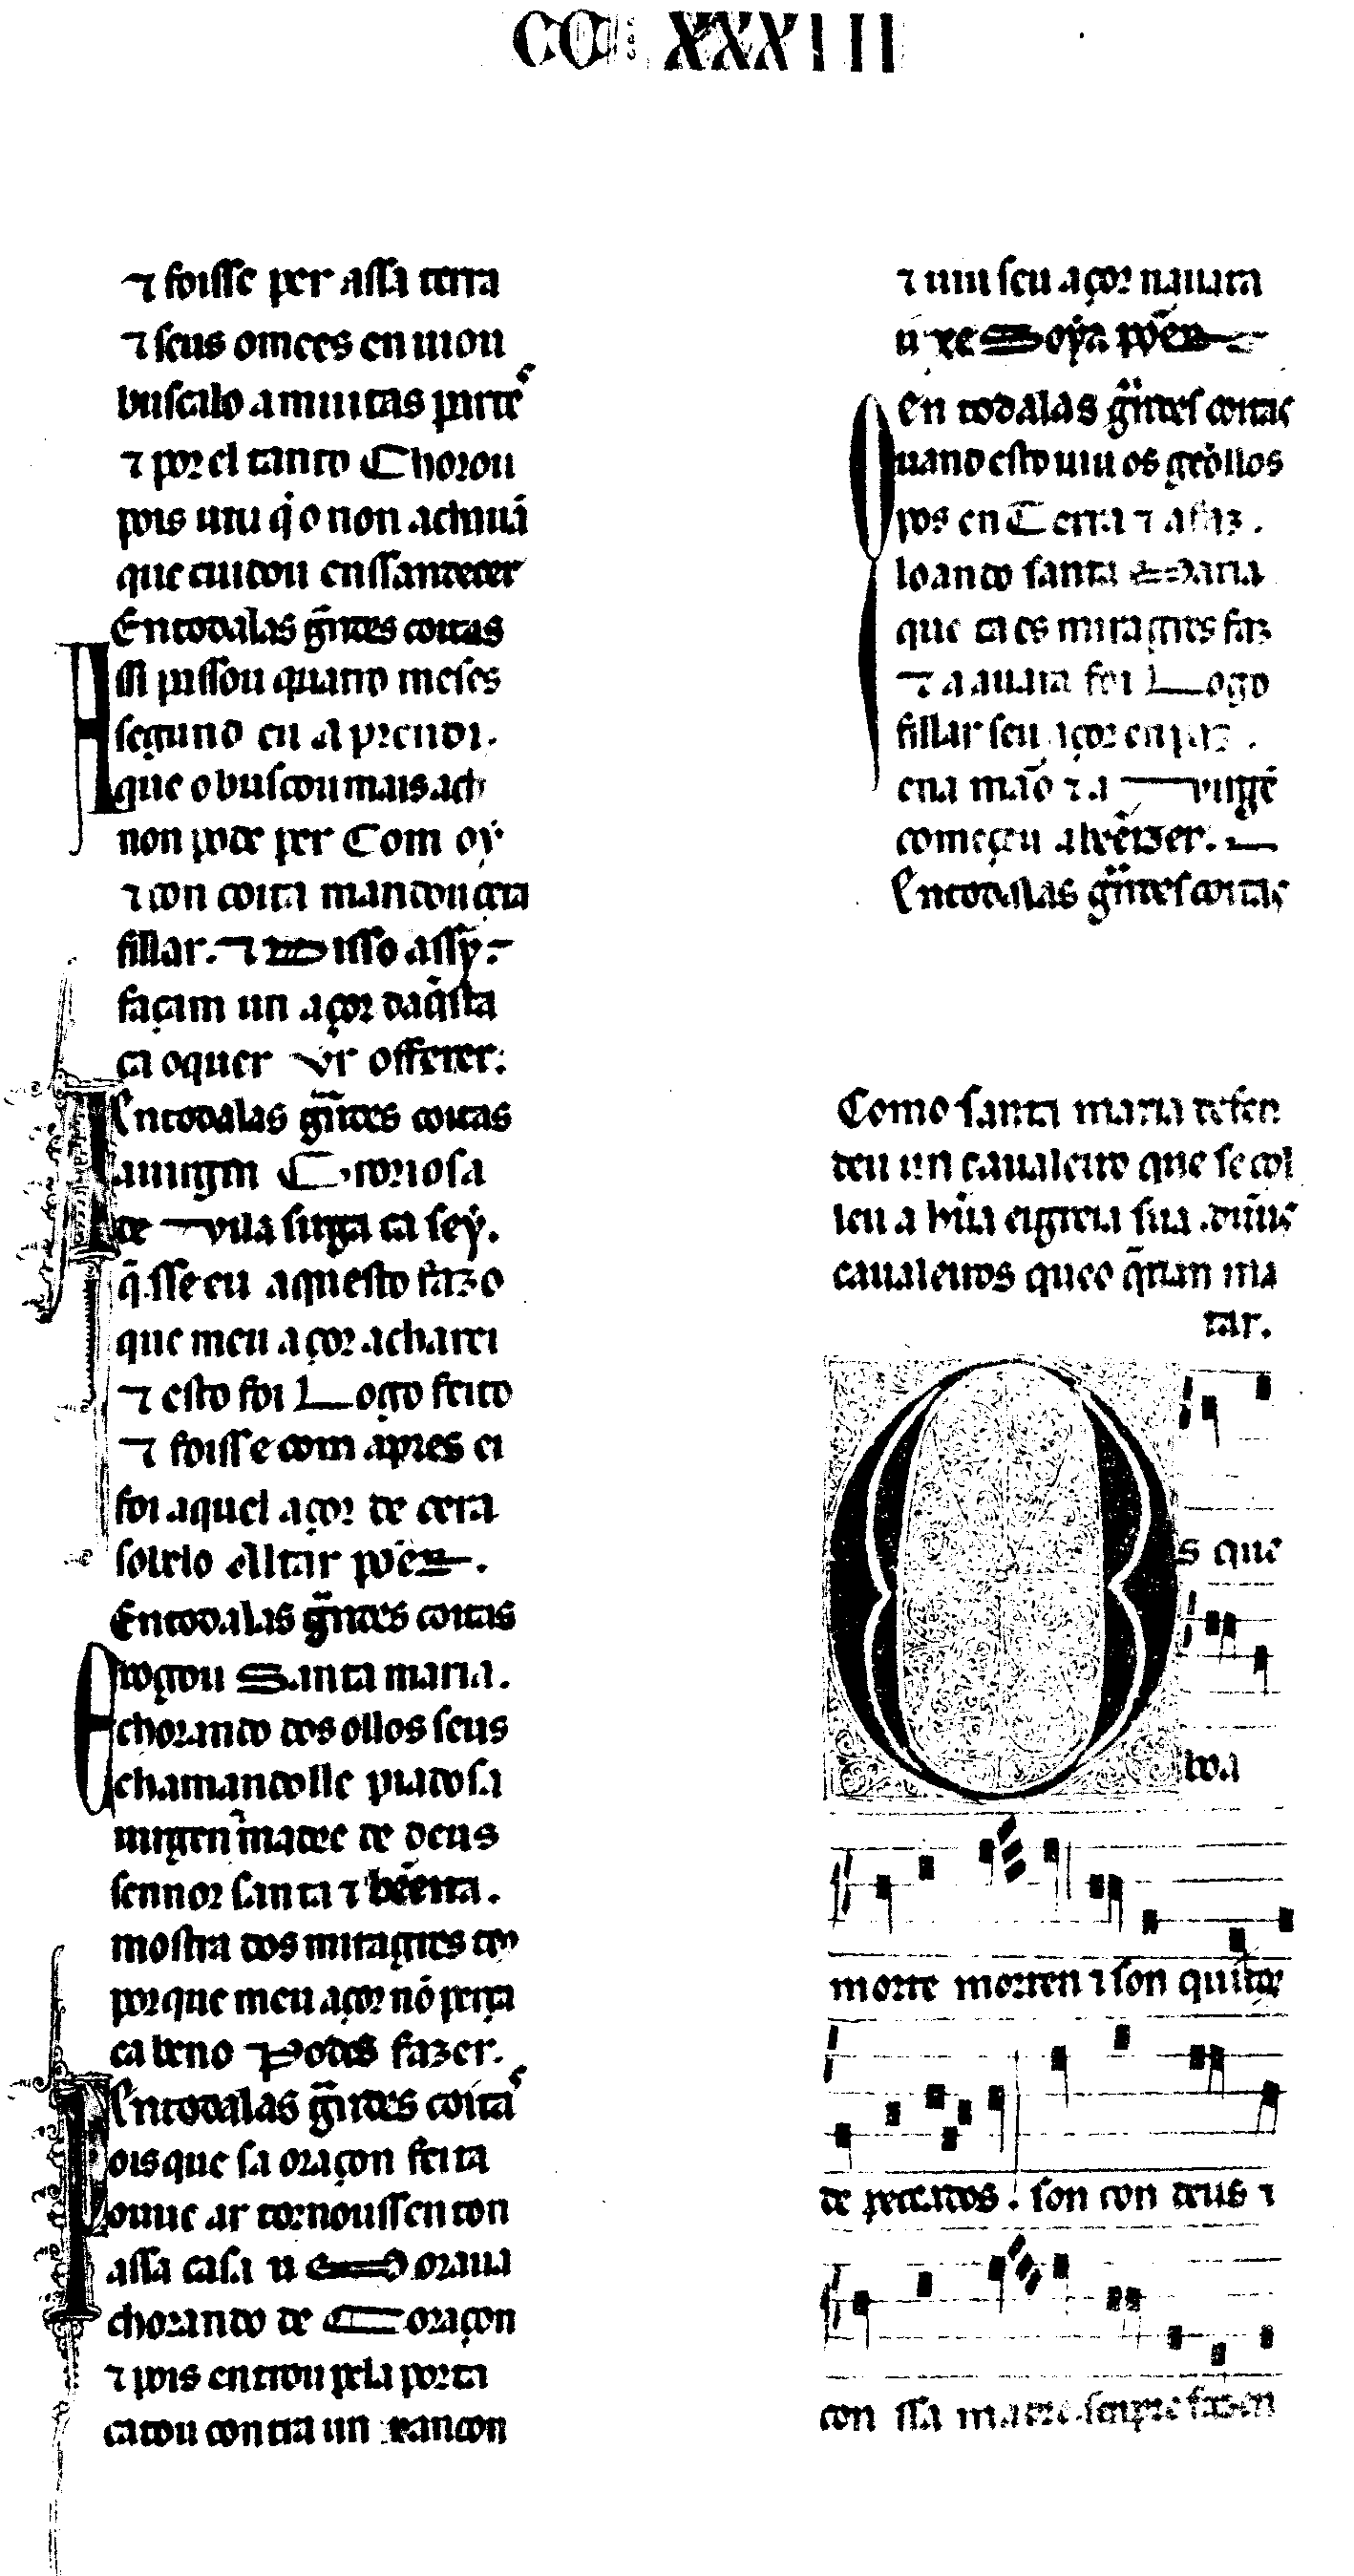 CC XXXIII
⁊ foisse per assa terra
⁊ seus omees enuiou
buscalo a muitas partes
⁊ por el tanto Chorou
pois uiu q̇ o non achauā
que cuidou enssandecer
En todalas g̃ndes coitas
Assi passou quatro meses
segund eu aprendi.
que o buscou mais ach
non pode per Com oý
⁊ con coita mandou cera
fillar. ⁊ Disso assý.
façam un açor daq̇sta
ca o quer Yr offerer:
En todalas g̃ndes coitas
A uirgen Groriosa
de Vila sirga ca sey.
q̄ sse eu aquesto fazo
que meu açor acharei
⁊ esto foi Logo feito
⁊ foisse com apres ei
foi aquel açor de cera
sobelo Altar põen.
En todalas g̃ndes coitas
E rogou Santa maria.
chorando dos ollos seus
chamandolle piadosa
uirgen madre de deus
sennor santa ⁊ bẽeita.
mostra dos miragres teus
por que meu açor nō perça
ca beno Podes fazer.
En todalas g̃ndes coitas
Pois que sa oraçon feita
ouue ar tornoussen ton
assa casa u Moraua
chorando de Coraçon
⁊ pois entrou pela porta
catou contra un rancon
⁊ uiu seu açor na uara
u xe Soýa põer
En todalas g̃ndes coitas
Quand esto uiu os geōllos
pos en Terra ⁊ a faz.
loando santa Maria
que taes miragres faz
⁊ a a uara foi Logo
fillar seu açor en paz.
ena mão ⁊ a Virgē
começou a bẽeizer.
En todalas g̃ndes coitas
Como santa maria defen
deu un caualeiro que se col
leu a hũa eigreia sua. dũus
caualeiros queo q̄rian ma
tar.
Os que
boa
morte morren ⁊ son quitos
de pecados. son con deus ⁊
con ssa madre. senpre fazen